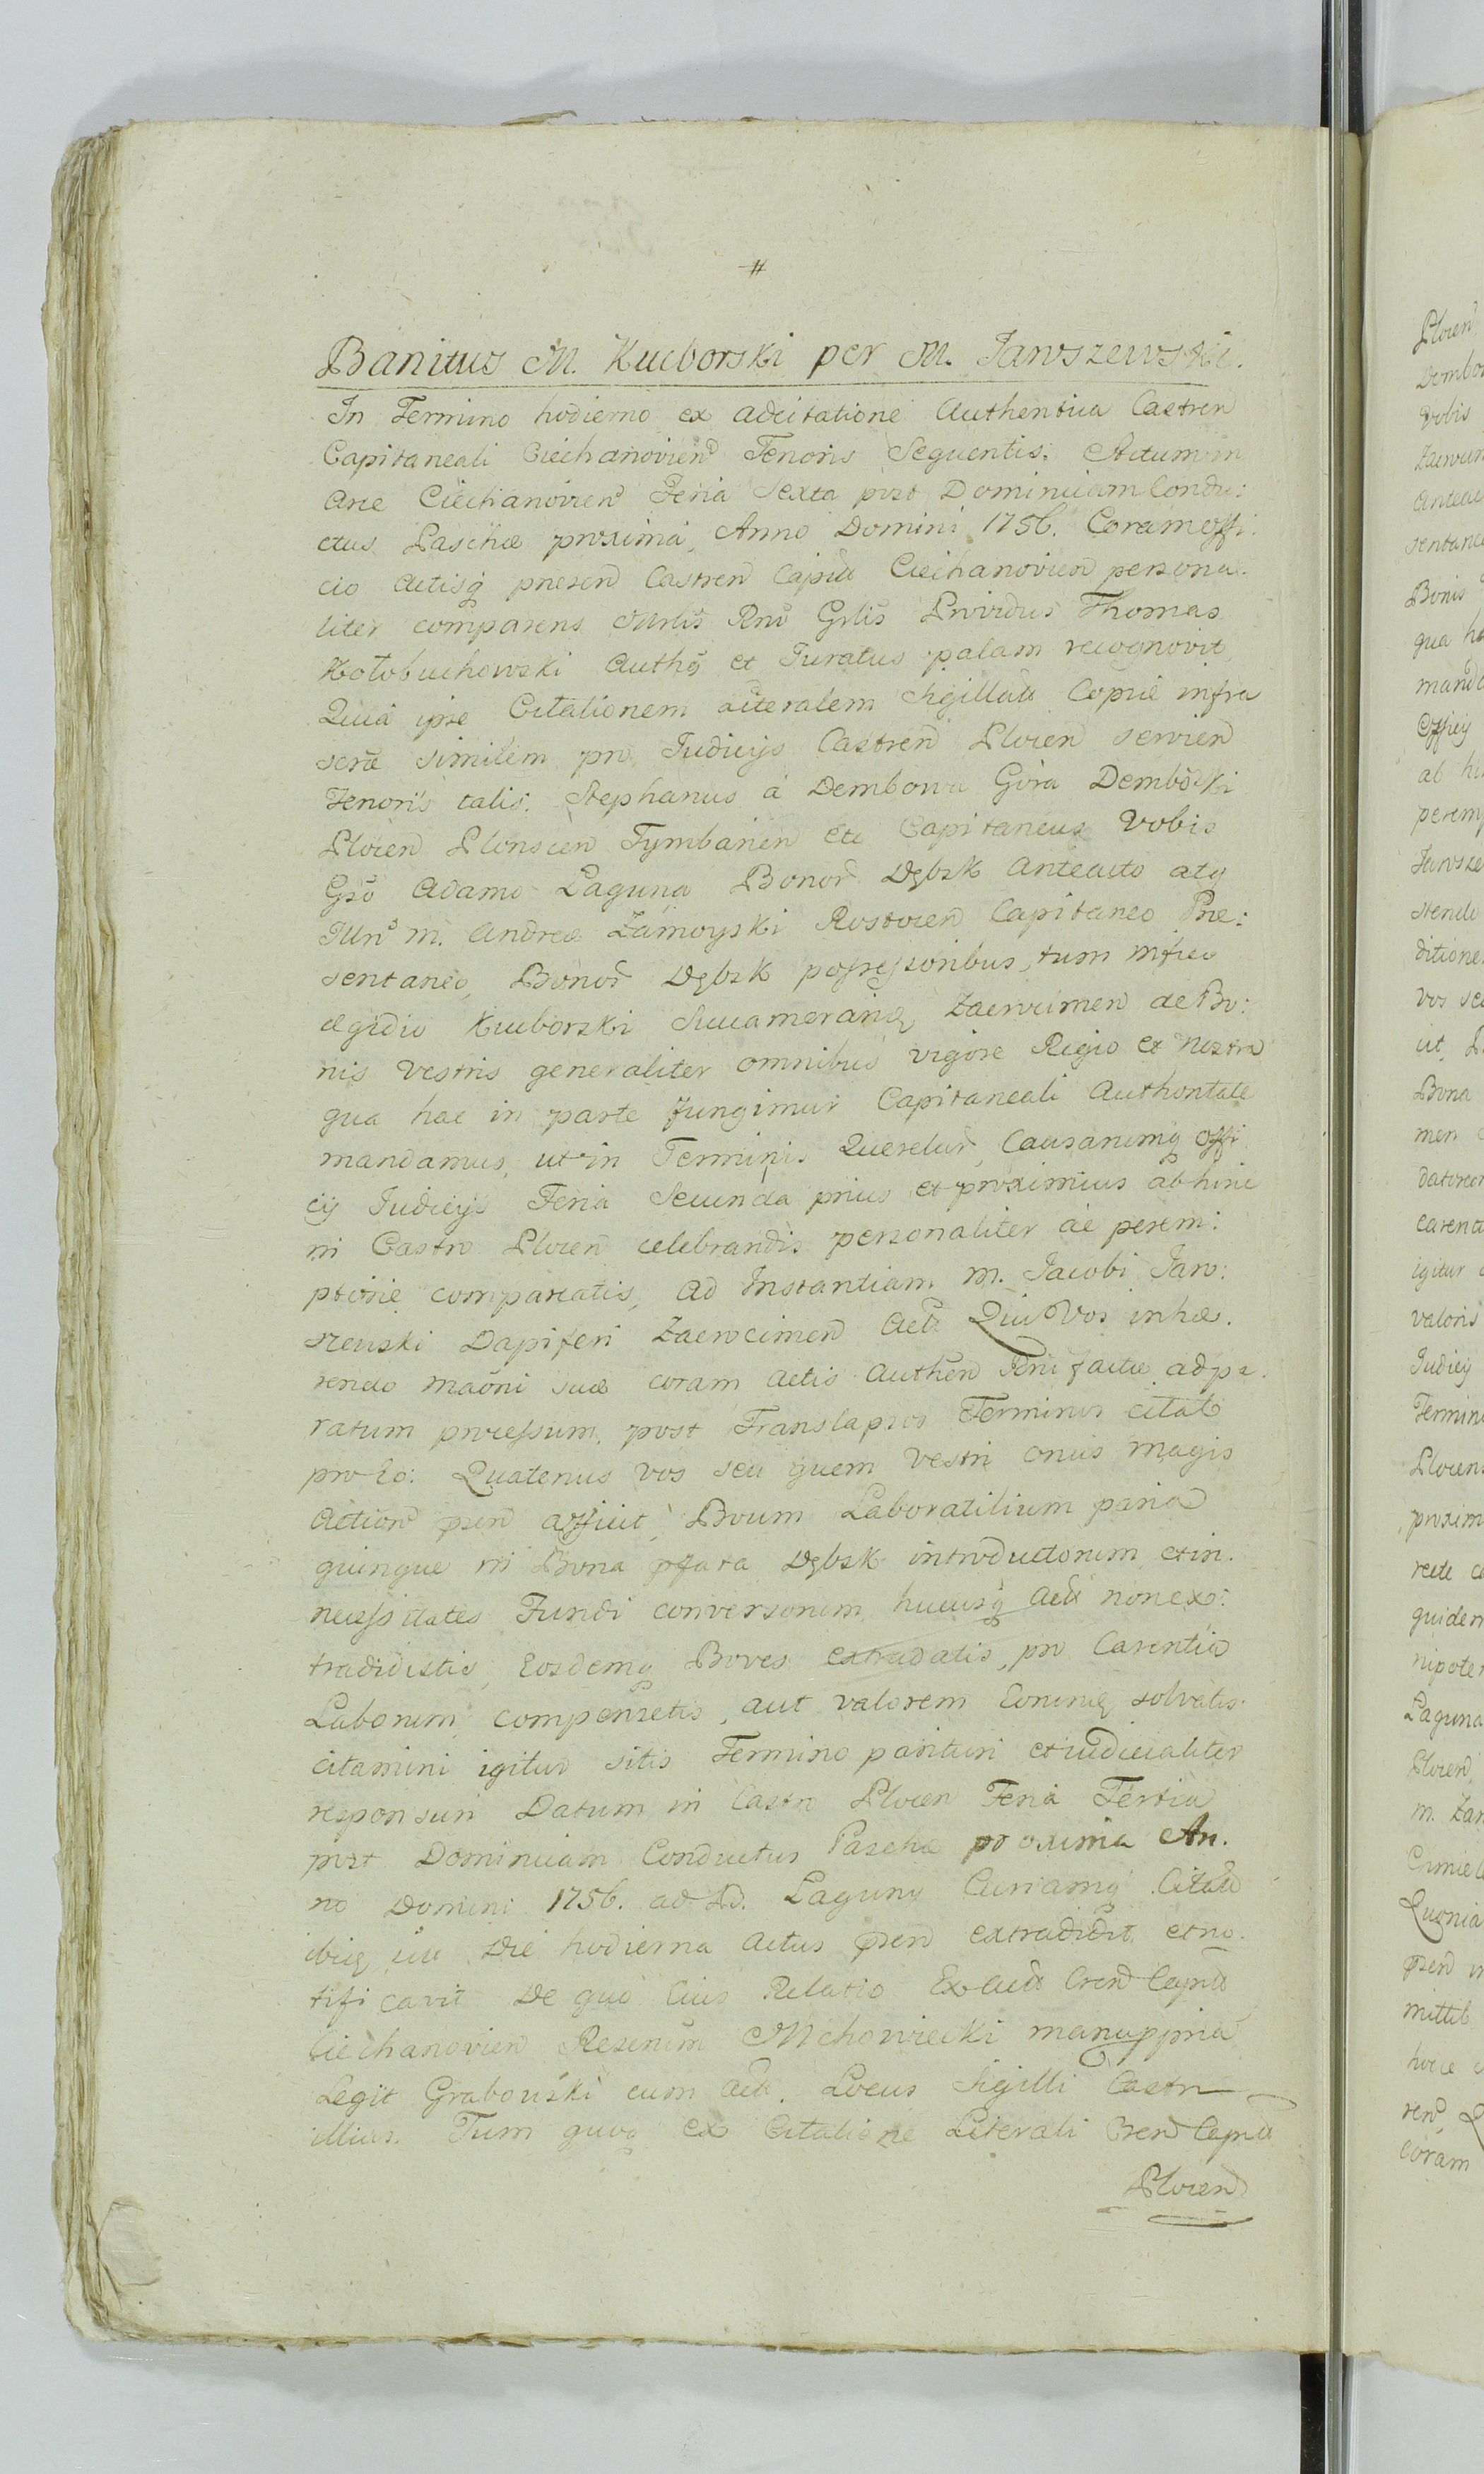 #
Banitus M. Kucborski per M. Jaroszewski.
In Termino hodierno ex adcitatione Authentica Castren
Capitaneali Ciechanovien Tenoris Sequentis: Actum in
Arce Ciechanovien Feria Sexta post Dominicam Condu:
ctus Paschæ proxima, Anno Domini 1756. Coram offi:
cio Actisq̃ presen Castren Capitli Ciechanovien persona:
liter comparens Mrlis Rni Grlis Providus Thomas
Kołobuchowski Authq̃ et Juratus palam recognovit
Quia ipse Citationem Literalem Sigillatã Copiæ infra
scræ similem pro Judicijs Castren Plocen servien
Tenoris talis. Stephanus à Dembowa Góra Dembowski
Plocen Plonscen Tymbarien etc Capitaneus Vobis
Gso Adamo Laguna Bonor Dębsk Anteacto atq
Mm. Andreæ Zamoyski Rostocen Capitaneo Præ:
sentaneo, Bonor Dębsk possessoribus, tum mfico
Ægidio Kucborski Succamerariæ Zawcrinen de Bo:
nis Vestris generaliter omnibus vigore Regio et nostra
qua hac in parte fungimur Capitaneali Authoritate
mandamus, ut in Terminis Querelar, Causarumq̃ offi
cij Judicijs Feria Secunda prius et proximius abhinc
in Castro Plocen celebrandis personaliter ac perem:
ptorie compareatis, Ad Instantiam M. Jacobi Jaro:
szewski Dapiferi Zawcrinen Act. Qui Vos inhæ.
rendo maõni suæ coram Actis Authen Rni factæ ad pa.
ratum processum, post Translapsos Terminos citat
pro Eo: Quatenus vos seu quem vestri onus magis
Action psen afficit, Boum Laboratilium paria
quinque in Bona pfata Dębsk introductorum et in.
necessitates Fundi conversorum hucusq̃ Actu non ex:
tradidistis, Eosdemq̃ Boves extradatis, pro Carentia
Laborum compensetis, aut valorem Eorumq̃ solvatis.
citamini igitur sitis Termino parituri et iudicialiter
responsuri Datum in Castro Plocen Feria Tertia
post Dominicam Conductus Paschæ proxima An.
no Domini 1756. ad G. Laguny Curiamq̃ Citatã
ibiq die hodierna Actus psen extradidit et no.
tificavit De quo Eius Relatio Ex Actis Cren Capnli
Ciechanovien Rescrum Mchowiecki manuppria
Legit Grabowski cum Act. Locus Sigilli Castri
illius. Tum quoq̃ ex Citatione Literali Cren Capnli
Plocen